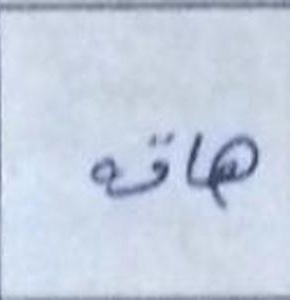 هاقه